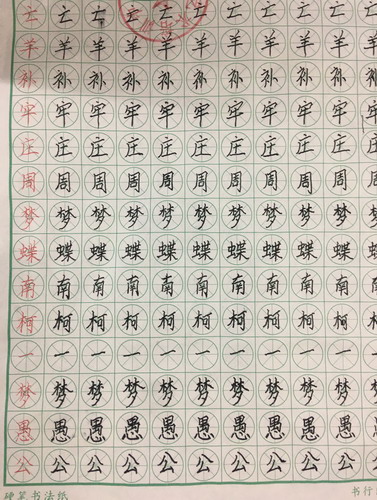 亡亡亡亡亡亡亡亡亡亡亡
羊羊羊羊羊羊羊羊羊羊羊
补补补补补补补补补补补
牢牢牢牢牢牢牢牢牢牢牢
庄庄庄庄庄庄庄庄庄庄庄
周周周周周周周周周周周
梦梦梦梦梦梦梦梦梦梦梦
蝶蝶蝶蝶蝶蝶蝶蝶蝶蝶蝶
南南南南南南南南南南南
柯柯柯柯柯柯柯柯柯柯柯
一一一一一一一一一一一
梦梦梦梦梦梦梦梦梦梦梦
愚愚愚愚愚愚愚愚愚愚愚
公公公公公公公公公公公
硬筆书法纸 书行